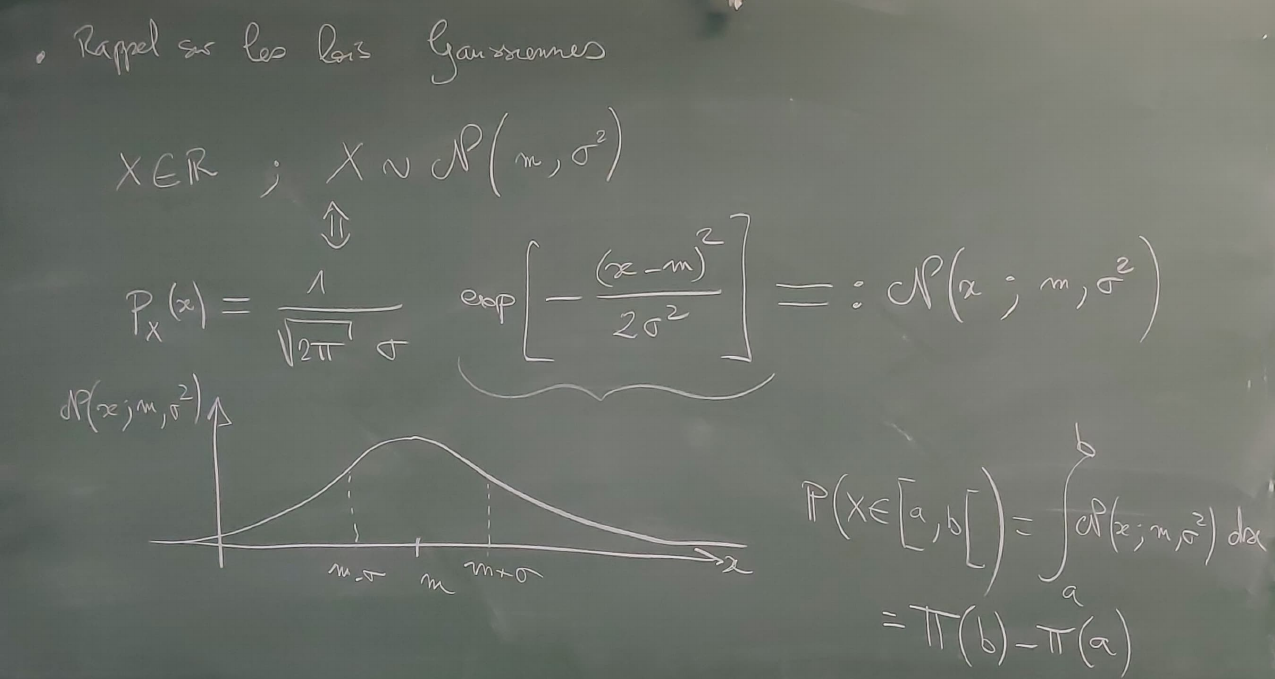 . Rappel sur les lois Gaussiennes
X∈ℝ ; X ~ 𝒩(m, σ²)
⇕
P_X(x) = 1/(√(2π) σ) exp[−(x−m)²/(2σ²)] =: 𝒩(x ; m, σ²)
𝒩(x ; m, σ²)
m-σ m m+σ x
ℙ(X∈[a,b[) = ∫_a^b 𝒩(x ; m, σ²) dx
= π(b) − π(a)